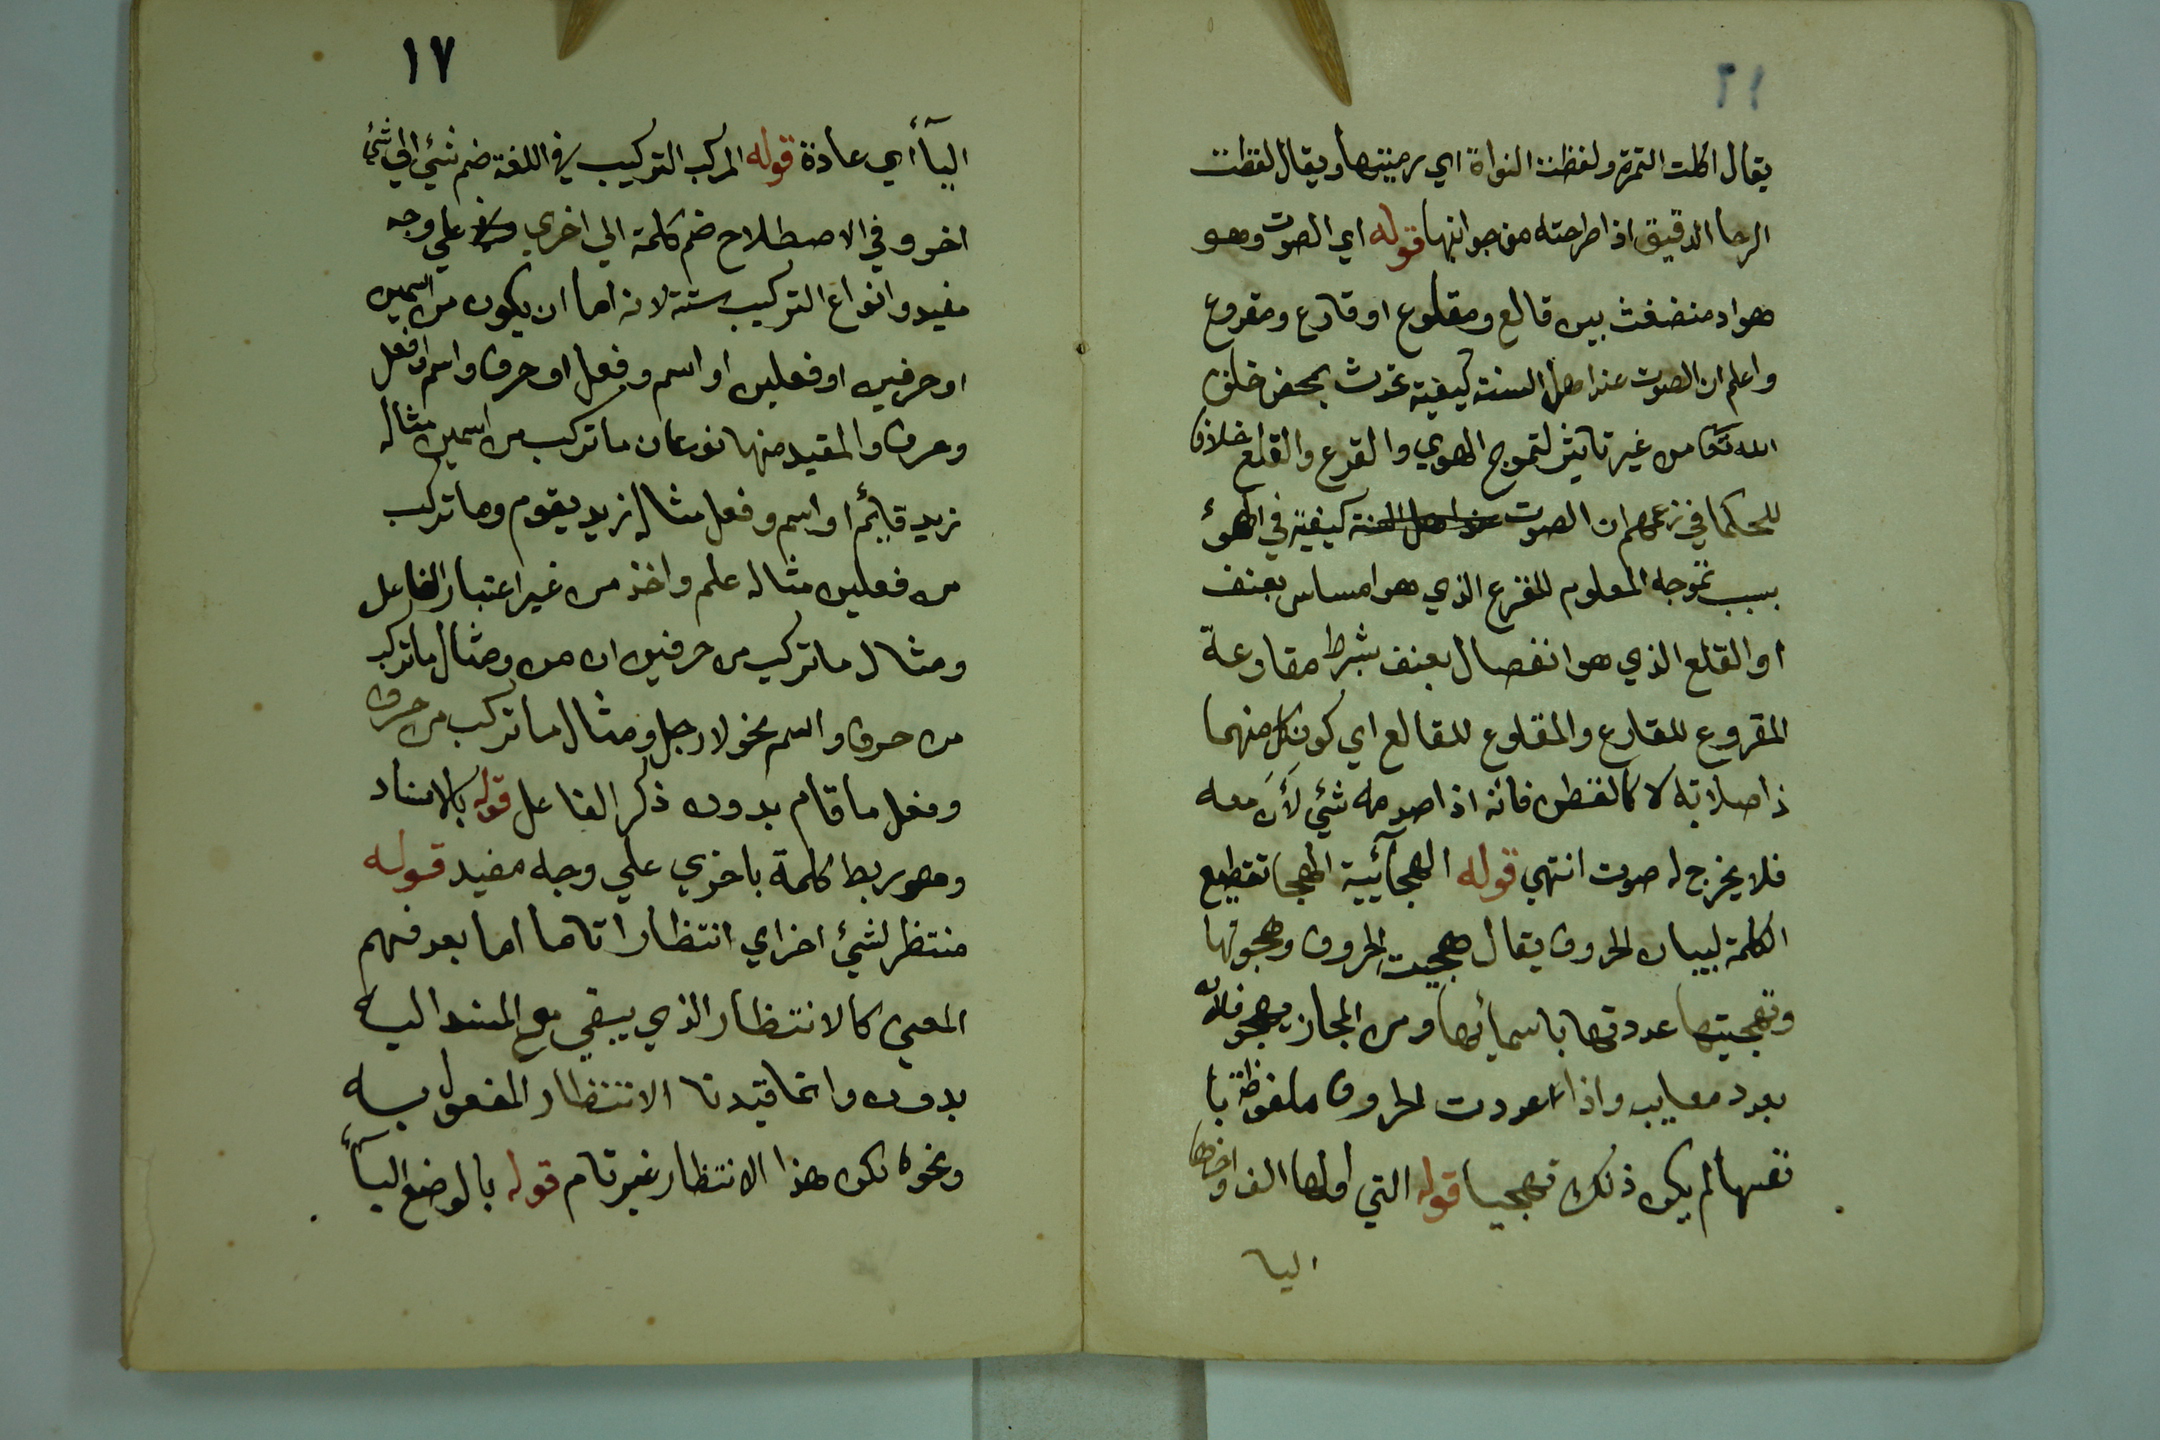 يقال اكلت التمرة ولفظت النواة اي رميتها ويقال لفظت
الرحا الدقيق اذا طرحته من جوانبها قوله اي الصوت وهو
هواء منضغث بين قالع ومقلوع او قارع ومقروع
واعلم ان الصوت عند اهل السنة كيفية تحدث بمحض خلق
الله تعا من غير تاثير لتموج الهوي والقرع والقلع خلافا
للحكما في زعمهم ان الصوت كيفية في الهوئ
بسبب تموجه المعلوم للقرع الذي هو امساس بعنف
او القلع الذي هو انفصال بعنف بشرط مقاوعة
المقروع للقارع والمقلوع للقالع اي كون كل منهما
ذا صلابة لا كالقطن فانه اذا صدمه شئي لأن معه
فلا يخرج له صوت انتهي قوله الهجآئية الهجا تقطيع
الكلمة لبيان الحروف يقال هجيت الحروف وهجوتها
وتهجيتها عددتها باسمائها ومن المجاز يهجو فلانه
بعدد معايبه واذا عددت الحروف ملفوظة با
نفسها لم يكن ذلك تهجيا قوله التي اولها الف واخرها
اليا
١٧
اليآأ اي عادة قوله المركب التركيب في اللغة ضم شئي الي شئي
اخر وفي الاصطلاح ضم كلمة الي اخري علي وجه
مفيد وانواع التركيب ستة لانه اما ان يكون من اسمين
او حرفين او فعلين او اسم وفعل او حرف واسم او فعل
وحرف والمقيد منها نوعان ما تركب من اسمين مثاله
زيد قايئم او اسم وفعل مثاله زيد يقوم وما تركب
من فعلين مثاله علم واخذ من غير اعتبار الفاعل
ومثال ما تركب من حرفين ان من ومثال ما تركب
من حرف واسم نحو لا رجل ومثال ما تركب من حرف
وفعل ما قام بدون ذكر الفاعل قوله بالاسناد
وهو ربط كلمة باخري علي وجه مفيد قوله
منتظر لشئ اخر اي انتظارا تاما اما بعد فهم
المعني كالانتظار الذي يبقي مع المسند اليه
بدون وانما قيدنا الانتظار المفعول به
ونحوه لكن هذا الانتظار غير تام قوله بالوضع اليآأ